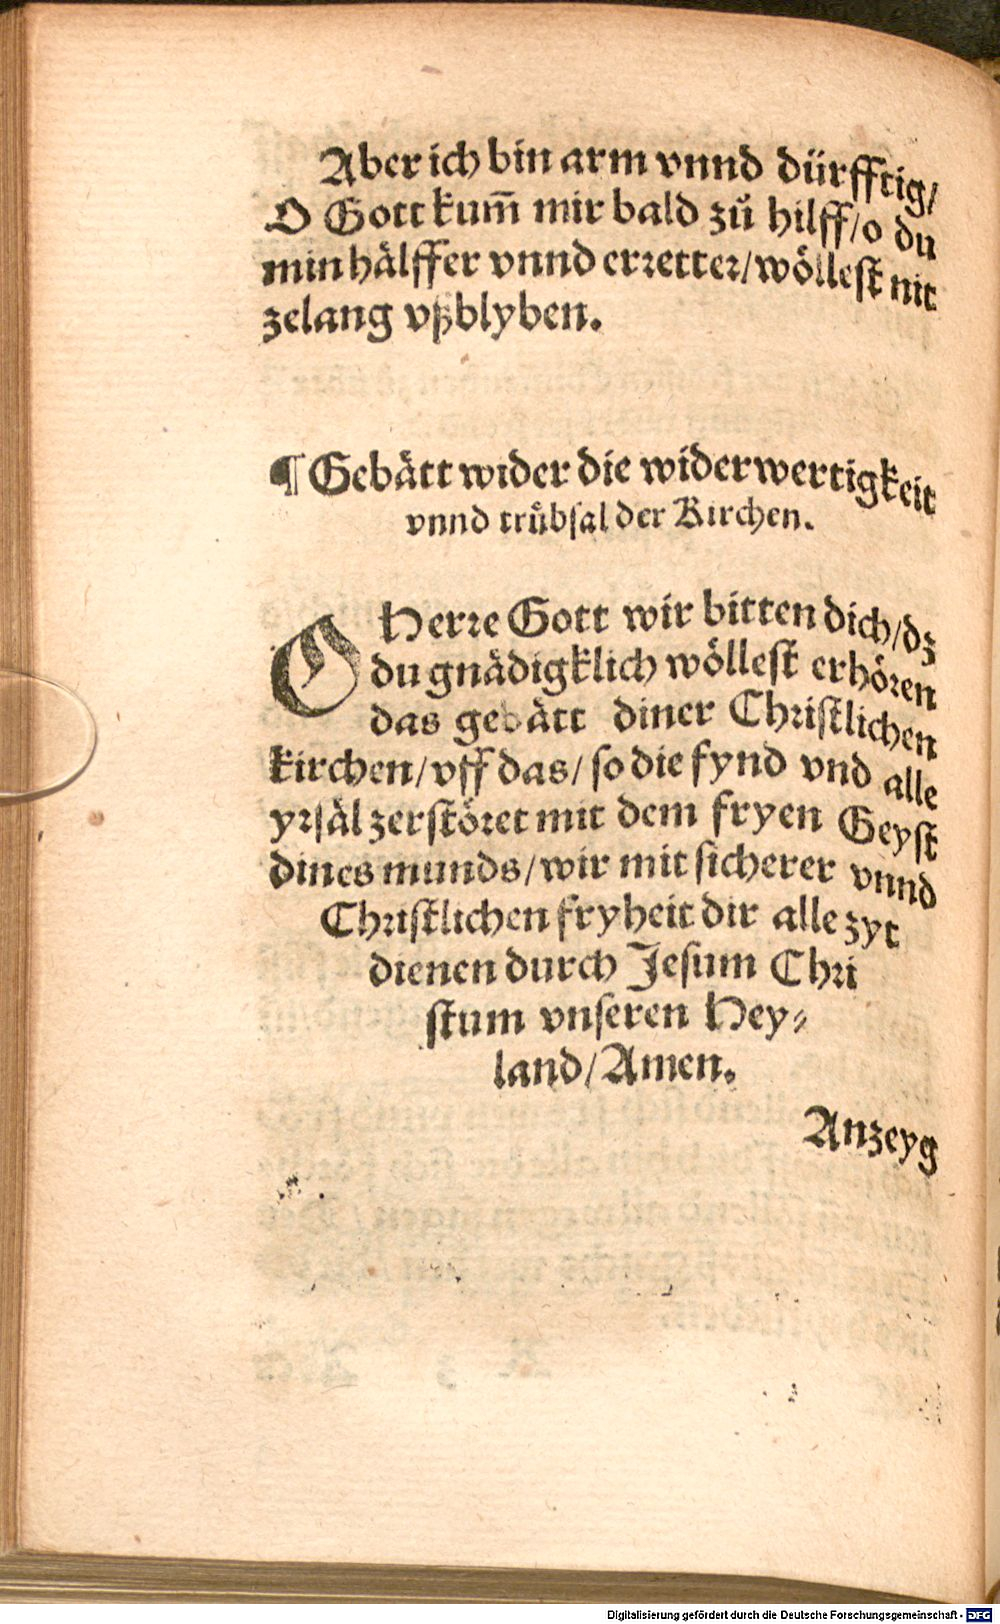 Aber ich bin arm vnnd dürfftig/
O Gott kum̄ mir bald zů hilff/o du
min hälffer vnnd erꝛetteꝛ/wöllest nit
zelang vßblyben.
¶ Gebätt wider die widerwertigkeit
vnnd trůbſal der Kirchen.
O Herꝛe Gott wir bitten dich/dz
du gnädigklich wöllest erhöꝛen
das gebätt diner Chꝛiſtlichen
kirchen/vff das/ ſo die fynd vnd alle
yꝛſäl zerſtöꝛet mit dem fryen Geyſt
dines munds/wir mit ſicherer vnnd
Chꝛiſtlichen fryheit dir alle zyt
dienen durch Jeſum Chꝛi
ſtum vnſeren Hey⸗
land/Amen.
Anzeyg
Digitalisierung gefördert durch die Deutsche Forschungsgemeinschaft - DFG